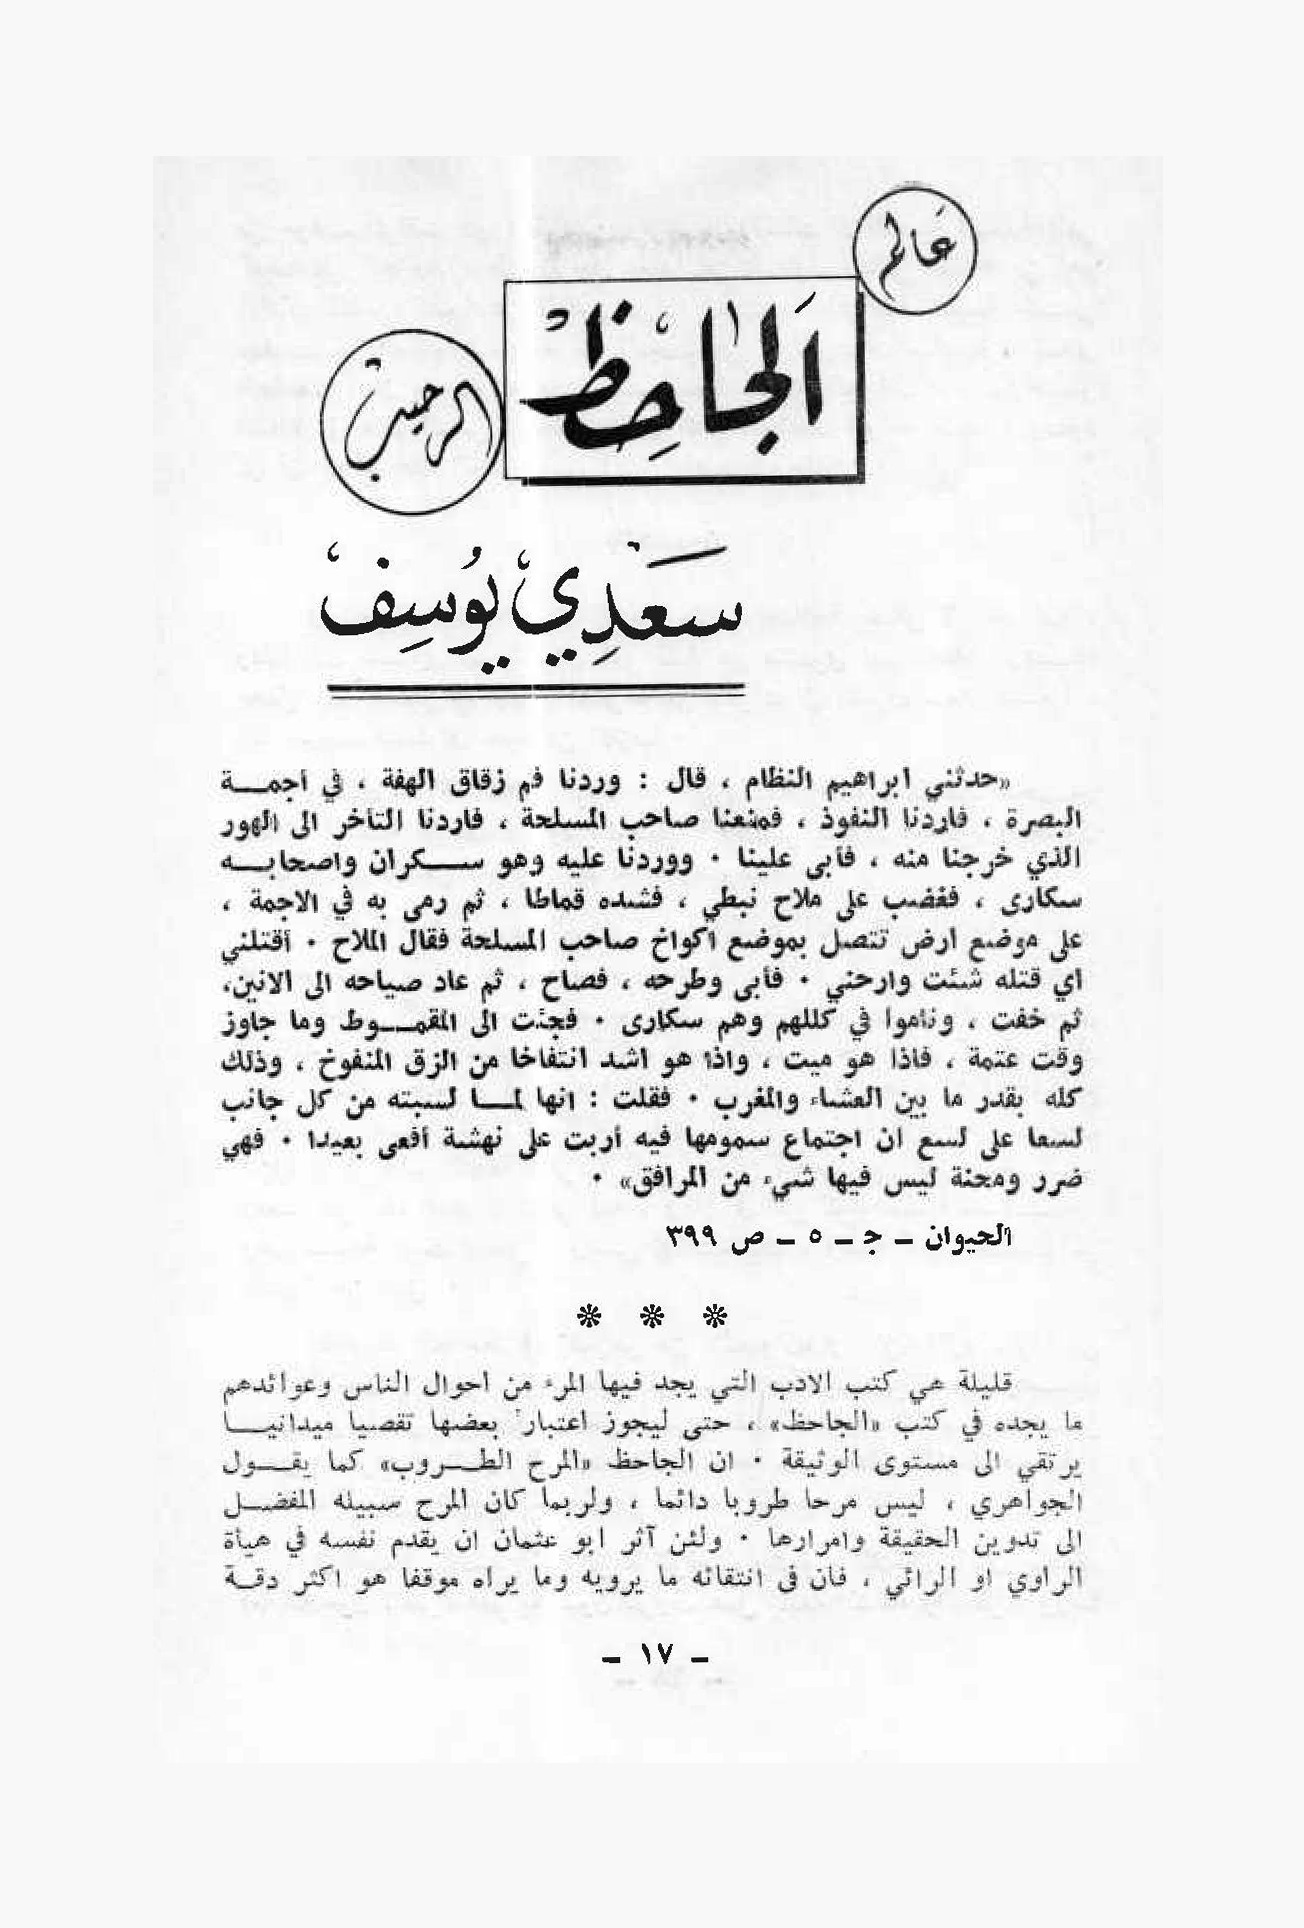 عَالم
الجاحِظ
الرحيب
سَعْدِي يُوسِف
«حدثني ابراهيم النظام ، قال : وردنا فم زقاق الهفة ، في أجمة
البصرة ، فاردنا النفوذ ، فمنعنا صاحب المسلحة ، فاردنا التأخر الى الهور
الذي خرجنا منه ، فأبى علينا . ووردنا عليه وهو سكران واصحابه
سكارى ، فغضب على ملاح نبطي ، فشده قماطا ، ثم رمى به في الاجمة ،
على موضع ارض تتصل بموضع اكواخ صاحب المسلحة فقال الملاح . أقتلني
اي قتله شئت وارحني . فأبى وطرحه ، فصاح ، ثم عاد صياحه الى الانين،
ثم خفت ، وناموا في كللهم وهم سكارى . فجئت الى المقموط وما جاوز
وقت عتمة ، فاذا هو ميت ، واذا هو اشد انتفاخا من الزق المنفوخ ، وذلك
كله بقدر ما بين العشاء والمغرب . فقلت : انها لما لسبته من كل جانب
لسعا على لسع ان اجتماع سمومها فيه أربت على نهشة أفعى بعيدا . فهي
ضرر ومحنة ليس فيها شيء من المرافق» .
الحيوان ـ جـ ـ ٥ ـ ص ٣٩٩
* * *
قليلة هي كتب الادب التي يجد فيها المرء من احوال الناس وعوائدهم
ما يجده في كتب «الجاحظ» ، حتى ليجوز اعتبار بعضها تقصيا ميدانيا
يرتقي الى مستوى الوثيقة . ان الجاحظ «المرح الطروب» كما يقول
الجواهري ، ليس مرحا طروبا دائما ، ولربما كان المرح سبيله المفضل
الى تدوين الحقيقة وامرارها . ولئن آثر ابو عثمان ان يقدم نفسه في هيأة
الراوي او الرائي ، فان فى انتقائه ما يرويه وما يراه موقفا هو اكثر دقة
ـ ١٧ ـ